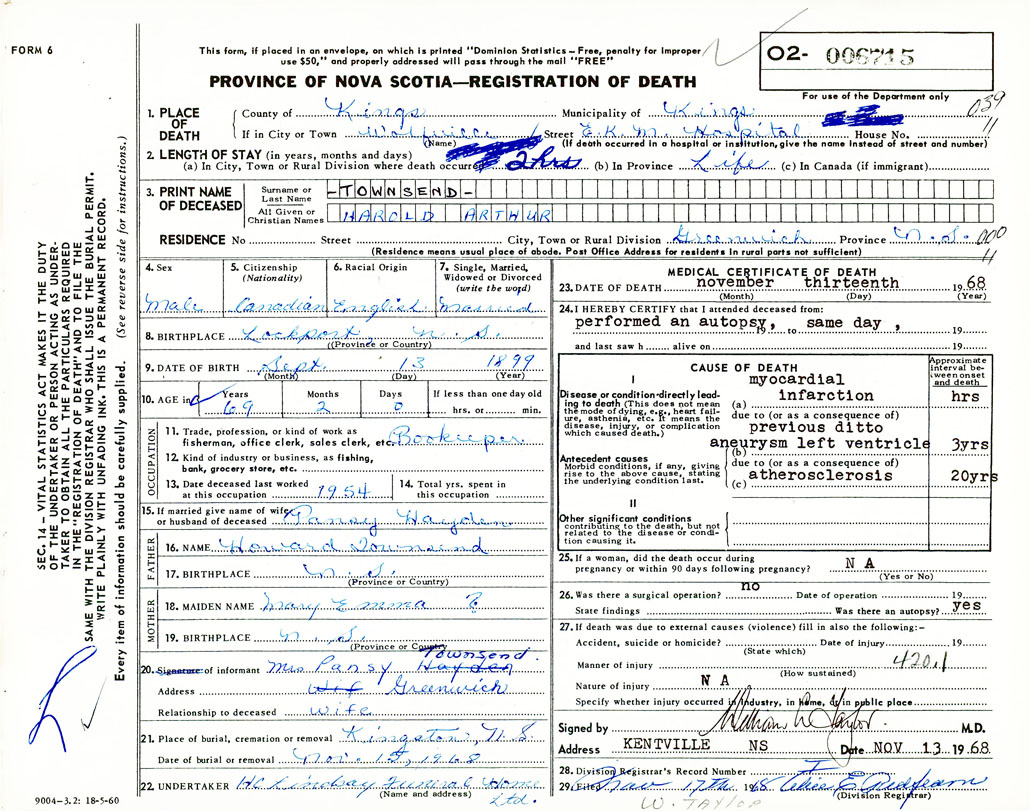 FORM 6
This form, if placed in an envelope, on which is printed "Dominion Statistics – Free, penalty for improper
use $50," and properly addressed will pass through the mail "FREE"
PROVINCE OF NOVA SCOTIA—REGISTRATION OF DEATH
02- 006715
For use of the Department only
039
11
1. PLACE OF DEATH
County of Kings Municipality of Kings
If in City or Town Wolfville Street E.K.M. Hospital House No.
(Name) (If death occurred in a hospital or institution, give the name instead of street and number)
2. LENGTH OF STAY (in years, months and days)
(a) In City, Town or Rural Division where death occurred 2 hrs (b) In Province Life (c) In Canada (if immigrant)
3. PRINT NAME OF DECEASED
Surname or Last Name -TOWNSEND-
All Given or Christian Names HAROLD ARTHUR
RESIDENCE No Street City, Town or Rural Division Greenwich Province N.S. 000
11
(Residence means usual place of abode. Post Office Address for residents in rural parts not sufficient)
4. Sex
Male
5. Citizenship
(Nationality)
Canadian
6. Racial Origin
English
7. Single, Married,
Widowed or Divorced
(write the word)
Married
8. BIRTHPLACE Lockport, N.S.
(Province or Country)
9. DATE OF BIRTH Sept. 13 1899
(Month) (Day) (Year)
10. AGE in
Years Months Days If less than one day old
69 2 0 hrs. or min.
OCCUPATION
11. Trade, profession, or kind of work as
fisherman, office clerk, sales clerk, etc. Bookeeper
12. Kind of industry or business, as fishing,
bank, grocery store, etc.
13. Date deceased last worked
at this occupation 1954
14. Total yrs. spent in
this occupation
15. If married give name of wife
or husband of deceased Pansy Hayden
FATHER
16. NAME Howard Townsend
17. BIRTHPLACE N.S.
(Province or Country)
MOTHER
18. MAIDEN NAME Mary Emma ?
19. BIRTHPLACE N.S.
(Province or Country)
Townsend
20. Signature of informant Mrs Pansy Hayden
Address Wif Greenwich
Relationship to deceased Wife
21. Place of burial, cremation or removal Kingston, N.S.
Date of burial or removal Nov. 15, 1968
22. UNDERTAKER HC Lindsay Funeral Home
(Name and address) Ltd.
9004-3.2: 18-5-60
MEDICAL CERTIFICATE OF DEATH
23. DATE OF DEATH november thirteenth 1968
(Month) (Day) (Year)
24. I HEREBY CERTIFY that I attended deceased from:
performed an autopsy, 19 to same day , 19
and last saw h alive on 19
CAUSE OF DEATH
Approximate interval between onset and death
I
Disease or condition directly leading to death (This does not mean the mode of dying, e.g., heart failure, asthenia, etc. It means the disease, injury, or complication which caused death.)
myocardial
(a) infarction hrs
due to (or as a consequence of)
previous ditto
aneurysm left ventricle 3yrs
(b)
Antecedent causes
Morbid conditions, if any, giving rise to the above cause, stating the underlying condition last.
due to (or as a consequence of)
(c) atherosclerosis 20yrs
II
Other significant conditions
contributing to the death, but not related to the disease or condition causing it.
25. If a woman, did the death occur during
pregnancy or within 90 days following pregnancy? N A
(Yes or No)
26. Was there a surgical operation? no Date of operation 19
State findings Was there an autopsy? yes
27. If death was due to external causes (violence) fill in also the following:–
Accident, suicide or homicide? Date of injury 19
(State which)
Manner of injury 420.1
(How sustained)
Nature of injury N A
Specify whether injury occurred in Industry, in Home, or in public place
Signed by William W Taylor M.D.
Address KENTVILLE NS Date NOV 13 1968
28. Division Registrar's Record Number
29. Filed Nov 17th 1968 Alice E
(Division Registrar)
W. TAYLOR
SEC. 14 – VITAL STATISTICS ACT MAKES IT THE DUTY
OF THE UNDERTAKER OR PERSON ACTING AS UNDER-
TAKER TO OBTAIN ALL THE PARTICULARS REQUIRED
IN THE "REGISTRATION OF DEATH" AND TO FILE THE
SAME WITH THE DIVISION REGISTRAR WHO SHALL ISSUE THE BURIAL PERMIT.
WRITE PLAINLY WITH UNFADING INK. THIS IS A PERMANENT RECORD.
Every item of information should be carefully supplied. (See reverse side for instructions.)